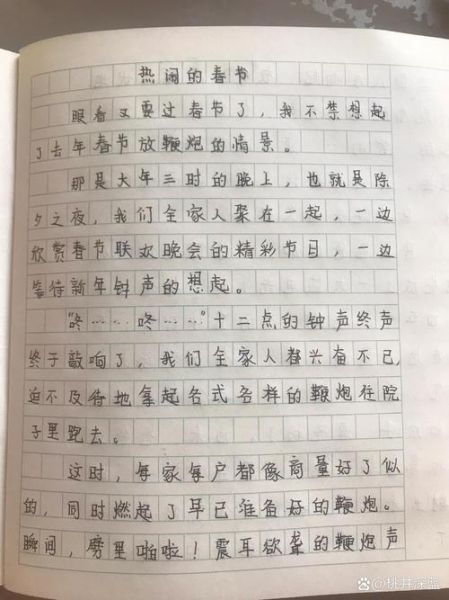 热闹的春节
眼看又要过春节了，我不禁想起
了去年春节放鞭炮的情景。
那是大年三时的晚上，也就是除
夕之夜，我们全家人聚在一起，一边
欣赏春节联欢晚会的精彩节目，一边
等待新年钟声的想起。
“咚……咚……”十二点的钟声终声
终于敲响了，我们全家人都兴奋不已，
迫不及待地拿起各式各样的鞭炮往院
子里跑去。
这时，每家每户都像商量好了似
的，同时燃起了早已准备好的鞭炮。
瞬间，劈里啪啦！震耳欲聋的鞭炮声
@桃井深蓝